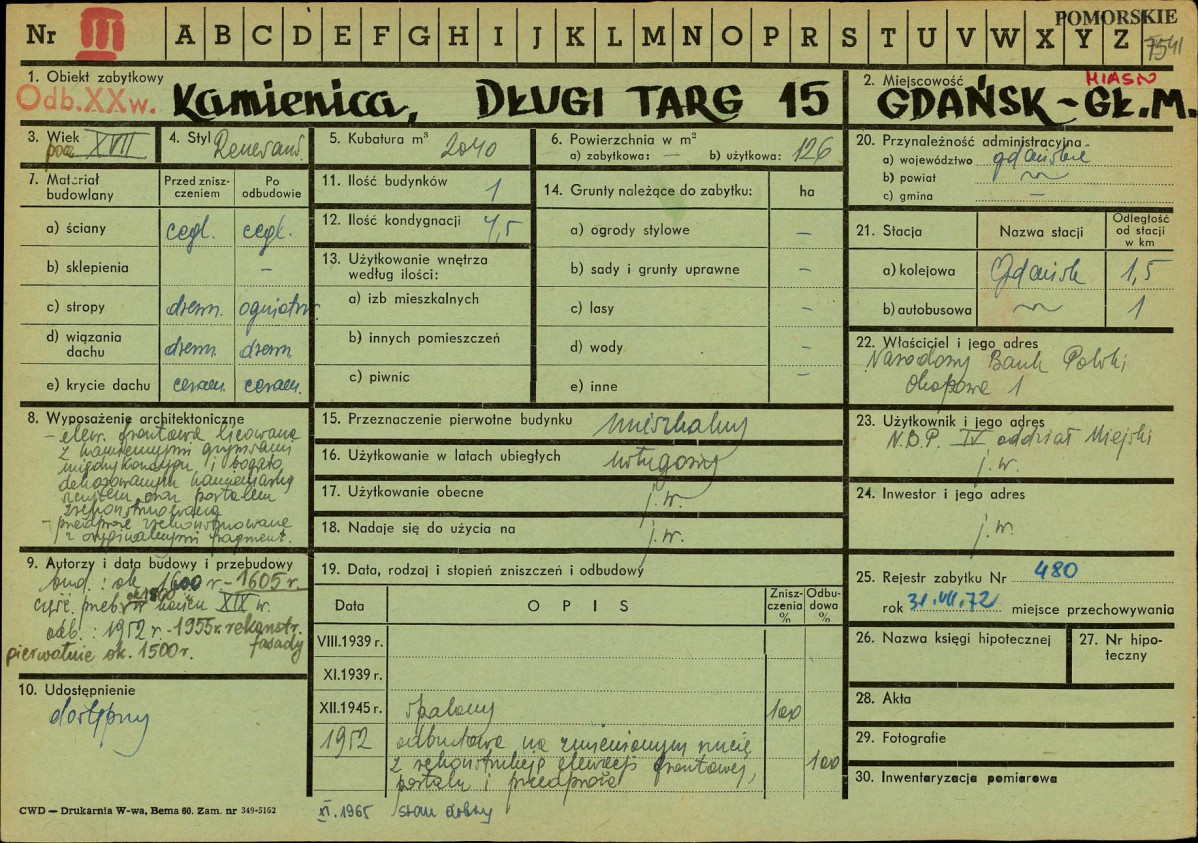 POMORSKIE
Nr III A B C D E F G H I J K L M N O P R S T U V W X Y Z
7541
1. Obiekt zabytkowy
Odb. XX w. Kamienica, DŁUGI TARG 15
2. Miejscowość MIASTO
GDAŃSK - GŁ. M.
3. Wiek
pocz. XVII
4. Styl Renesans.
5. Kubatura m³ 2040
6. Powierzchnia w m²
a) zabytkowa: — b) użytkowa: 126
20. Przynależność administracyjna
a) województwo gdańskie
b) powiat
c) gmina —
7. Materiał budowlany
Przed zniszczeniem
Po odbudowie
a) ściany cegł. cegł.
b) sklepienia –
c) stropy drewn. ogniotrw.
d) wiązania dachu drewn. drewn.
e) krycie dachu ceram. ceram.
11. Ilość budynków 1
12. Ilość kondygnacji 4,5
13. Użytkowanie wnętrza według ilości:
a) izb mieszkalnych
b) innych pomieszczeń
c) piwnic
14. Grunty należące do zabytku: ha
a) ogrody stylowe –
b) sady i grunty uprawne –
c) lasy –
d) wody –
e) inne –
21. Stacja Nazwa stacji Odległość od stacji w km
a) kolejowa Gdańsk 1,5
b) autobusowa 1
22. Właściciel i jego adres
Narodowy Bank Polski
Okopowa 1
8. Wyposażenie architektoniczne
- elew. frontowa licowana
z kamiennymi gzymsami
międzykondygn. i bogato
dekorowanym kamieniarką
szczytem oraz portalem
zrekonstruowana
- przedproże zrekonstruowane
z oryginalnymi fragment.
15. Przeznaczenie pierwotne budynku mieszkalny
16. Użytkowanie w latach ubiegłych usługowy
17. Użytkowanie obecne j.w.
18. Nadaje się do użycia na j.w.
23. Użytkownik i jego adres
N.B.P. IV oddział Miejski
j.w.
24. Inwestor i jego adres
j.w.
9. Autorzy i data budowy i przebudowy
bud.: ok. 1600 r. - 1605 r.
ok. 1800
częśc. przeb. w końcu XIX w.
odb.: 1952 r. - 1955 r. rekonstr.
fasady
pierwotnie ok. 1500 r.
10. Udostępnienie
dostępny
19. Data, rodzaj i stopień zniszczeń i odbudowy
Data OPIS Zniszczenia % Odbudowa %
VIII.1939 r.
XI.1939 r.
XII.1945 r. spalony 100
1952 odbudowa na zmienionym rzucie
z rekonstrukcją elewacji frontowej, 100
portalu i przedproża
XI.1965 stan dobry
25. Rejestr zabytku Nr 480
rok 31.VII.72 miejsce przechowywania
26. Nazwa księgi hipotecznej
27. Nr hipoteczny
28. Akta
29. Fotografie
30. Inwentaryzacja pomiarowa
CWD — Drukarnia W-wa, Bema 60. Zam. nr 349-5162